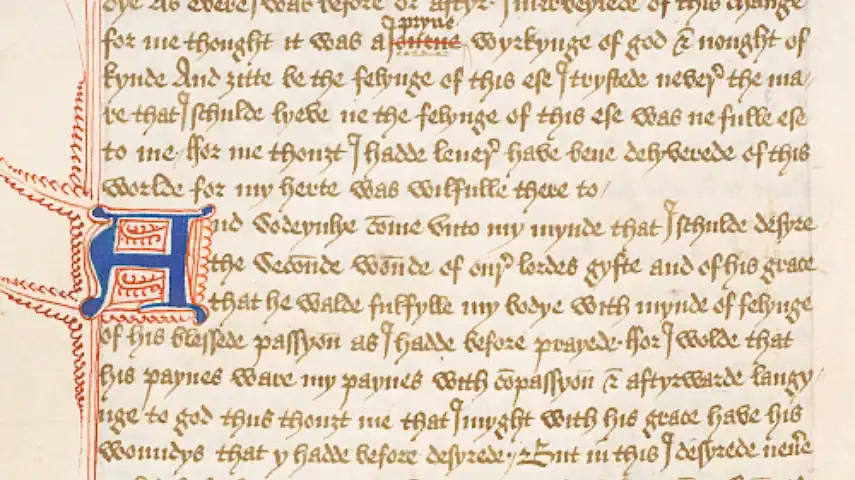 dye as evere I was before or aftyr. I merveyrede of this change
pryue
for me thought it was a Ioneue wyrkynge of god & nought of
kynde And zitte be the felynge of this ese I trystede never the ma
re that I schulde lyeve ne the felynge of this ese was ne fulle ese
to me. ffor me thouzt I hadde lever have bene delyverede of this
worlde for my herte was wilfulle there to /
And Sodeynlye come vnto my mynde that I schulde desyre
the Seconde wonde of our lordes gyfte and of his grace
that he walde fulfylle my bodye with mynde of felynge
of his blessede passyon as I hadde before prayede. ffor I wolde that
his paynes ware my paynes with compassyon & aftyrwarde langy /
nge to god thus thouzt me that I myght with his grace have his
wonndys that y hadde before desyrede. But in this I desyrede nevere